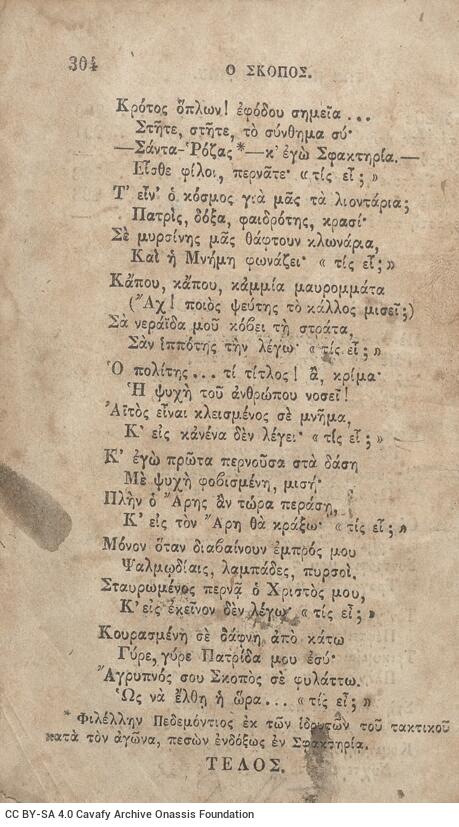 304
Ο ΣΚΟΠΟΣ.
Κρότος ὅπλων! ἐφόδου σημεῖα ...
Στῆτε, στῆτε, τὸ σύνθημα σύ·
—Σάντα-Ῥόζας*—κ' ἐγὼ Σφακτηρία.—
Εἶσθε φίλοι, περνᾶτε· «τίς εἶ;»
Τ' εἶν' ὁ κόσμος γιὰ μᾶς τὰ λιοντάρια;
Πατρὶς, δόξα, φαιδρότης, κρασί·
Σὲ μυρσίνης μᾶς θάφτουν κλωνάρια,
Καὶ ἡ Μνήμη φωνάζει· «τίς εἶ;»
Κᾄπου, κᾄπου, κᾀμμία μαυρομμάτα
(Ἄχ! ποιὸς ψεύτης τὸ κάλλος μισεῖ;)
Σὰ νεράϊδα μοῦ κόβει τὴ στράτα,
Σὰν ἱππότης τὴν λέγω· «τίς εἶ;»
Ὁ πολίτης ... τί τίτλος! ἂ, κρίμα·
Ἡ ψυχὴ τοῦ ἀνθρώπου νοσεῖ!
Ἀϊτὸς εἶναι κλεισμένος σὲ μνῆμα,
Κ' εἰς κάνένα δὲν λέγει· «τίς εἶ;»
Κ' ἐγὼ πρῶτα περνοῦσα στὰ δάση
Μὲ ψυχὴ φοβισμένη, μισή·
Πλὴν ὁ Ἄρης ἂν τώρα περάσῃ,
Κ' εἰς τὸν Ἄρη θὰ κράξω· «τίς εἶ;»
Μόνον ὅταν διαβαίνουν ἐμπρός μου
Ψαλμῳδίαις, λαμπάδες, πυρσοὶ.
Σταυρωμένος περνᾷ ὁ Χριστὸς μου,
Κ' εἰς ἐκεῖνον δὲν λέγω· «τίς εἶ;»
Κουρασμένη σὲ δάφνη ἀπὸ κάτω
Γύρε, γύρε Πατρίδα μου ἐσύ·
Ἄγρυπνός σου Σκοπὸς σὲ φυλάττω.
Ὡς νὰ ἔλθῃ ἡ ὥρα... «τίς εἶ;»
* Φιλέλλην Πεδεμόντιος ἐκ τῶν ἱδρυτῶν τοῦ τακτικοῦ
κατὰ τὸν ἀγῶνα, πεσὼν ἐνδόξως ἐν Σφακτηρίᾳ.
ΤΕΛΟΣ.
CC BY-SA 4.0 Cavafy Archive Onassis Foundation